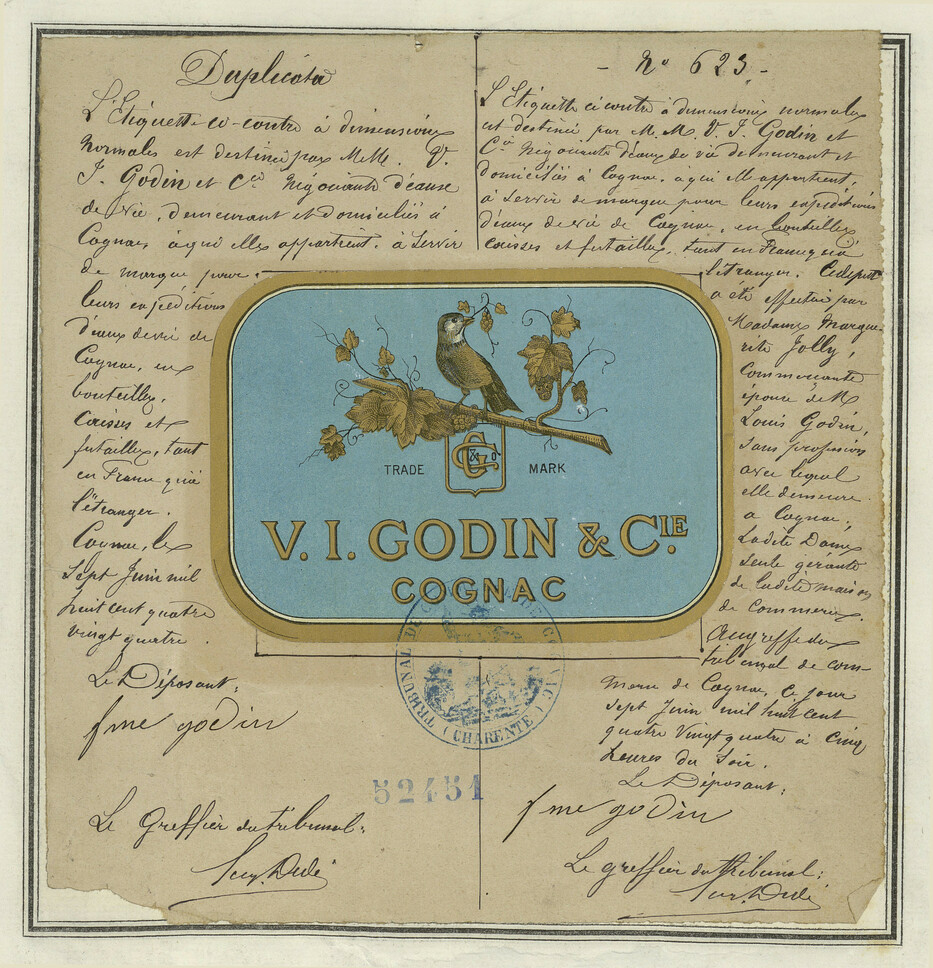 Duplicata
L'Étiquette ci-contre à dimensions
normales est destinée par M.M. V.
I. Godin et Cie Négociants d'eaux
de vie, demeurant et domiciliés à
Cognac, à qui elle appartient, à servir
de marque pour
leurs expéditions
d'eaux de vie de
Cognac, en
bouteilles,
caisses et
futailles, tant
en France qu'à
l'étranger.
Cognac, le
sept Juin mil
huit cent quatre
vingt quatre.
Le Déposant:
fme godin
Le Greffier du tribunal:
- No 623 -
L'Étiquette ci contre à dimensions normales
est destinée par M.M. V. I. Godin et
Cie Négociants d'eaux de vie demeurant et
domiciliés à Cognac, à qui elle appartient,
à servir de marque pour leurs expéditions
d'eaux de vie de Cognac, en bouteilles
caisses et futailles, tant en France qu'à
l'étranger. Ce dépôt
a été effectué par
Madame Margue-
rite Jolly,
Commerçante
épouse de M
Louis Godin,
sans profession
avec lequel
elle demeure
à Cognac,
Ladite Dame
seule gérante
de ladite maison
de commerce.
Au greffe du
tribunal de com-
merce de Cognac, ce jour
sept Juin mil huit cent
quatre vingt quatre à cinq
heures du soir.
Le Déposant:
fme godin
Le greffier du tribunal:
TRADE MARK
V. I. GODIN & CIE.
COGNAC
TRIBUNAL DE COMMERCE DE COGNAC
(CHARENTE)
52451